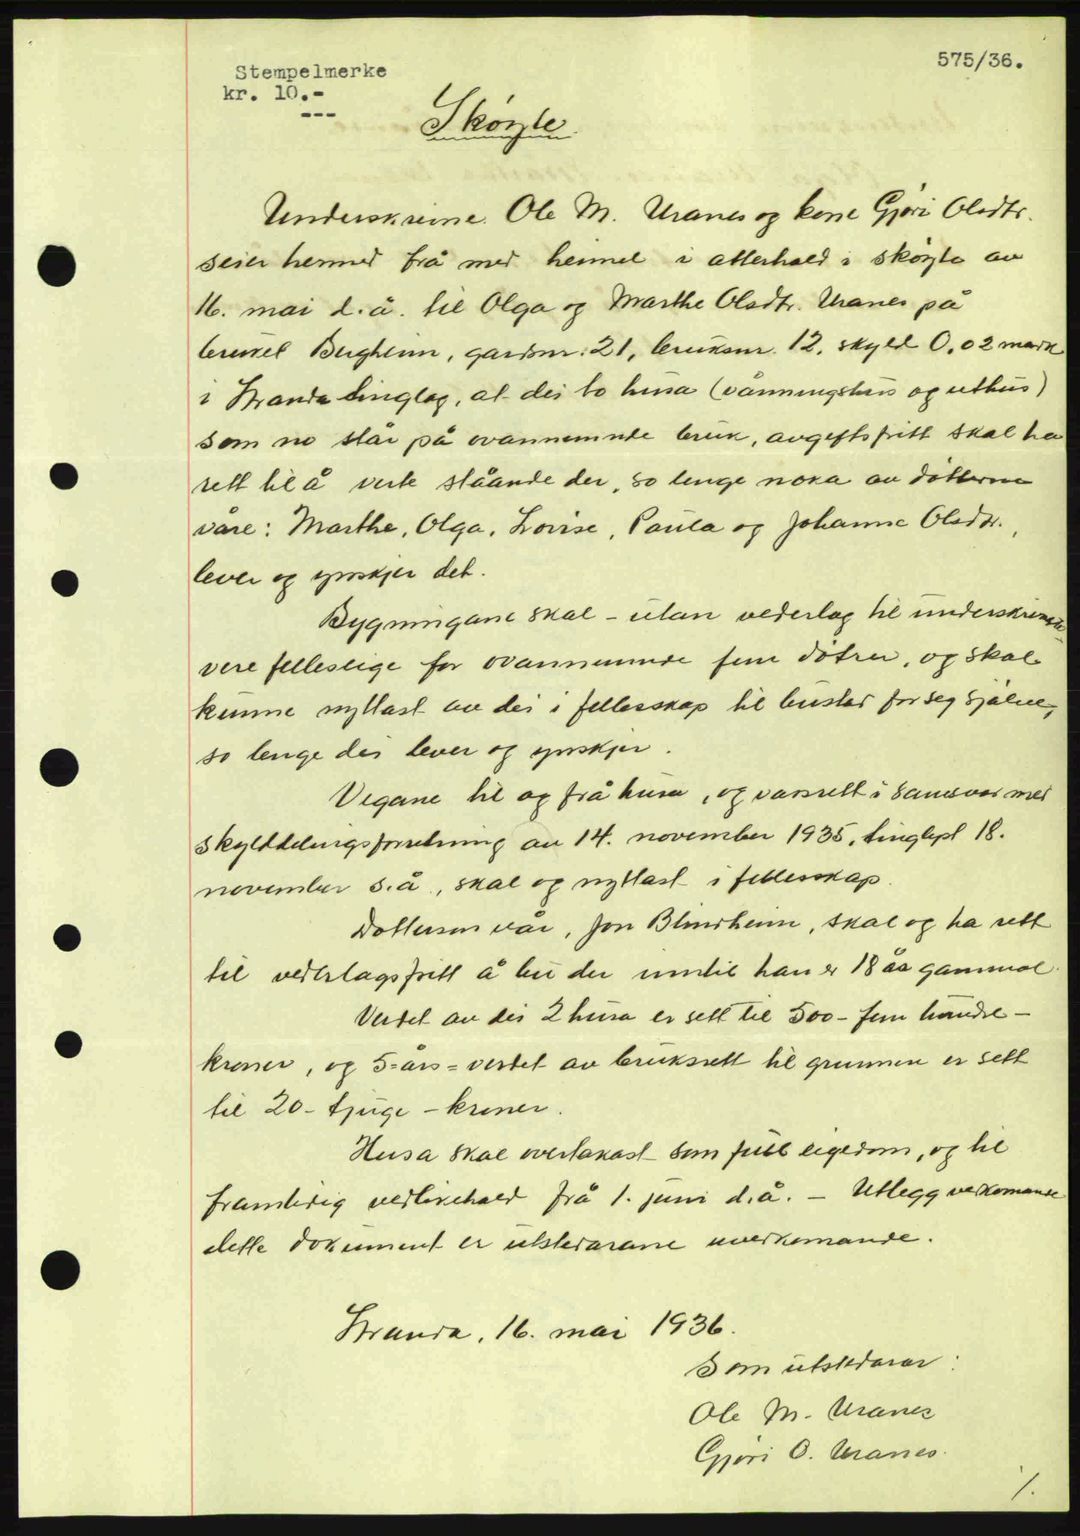 575/36.
Stempelmerke
kr. 10.-
---
Skøyte.
Underskrivne Ole M. Uranes og kone Gjøri Olsdtr.
seier hermed frå med heimel i atterhald i skøyte av
16. mai d.å. til Olga og Marthe Olsdtr. Uranes på
bruket Bergheim, gardsnr. 21, bruksnr. 12, skyld 0,02 mark
i Stranda tinglag, at dei to husa (våningshus og uthus)
som no står på ovannemnde bruk, avgiftsfritt skal ha
rett til å verte ståande der, so lenge noka av døtterne
våre: Marthe, Olga, Lovise, Paula og Johanne Olsdtr.,
lever og ynskjer det.
Bygningane skal - utan vederlag til underskrivne -
vere felleseige for ovannemnde fem døtrer, og skal
kunne nyttast av dei i fellesskap til bustad for seg sjølve,
so lenge dei lever og ynskjer.
Vegane til og frå husa, og vassrett i samsvar med
skylddelingsforretning av 14. november 1935, tinglyst 18.
november s.å., skal og nyttast i fellesskap.
Dotterson vår, Jon Blindheim, skal og ha rett
til vederlagsfritt å bu der inntil han er 18 år gammal.
Verdet av dei 2 husa er sett til 500 - fem hundre -
kroner, og 5-års-verdet av bruksrett til grunnen er sett
til 20 - tjuge - kroner.
Husa skal overtakast som full eigedom, og til
framtidig vedlikehald frå 1. juni d.å. - Utlegg vedkomande
dette dokument er utstedarane uvedkomande.
Stranda, 16. mai 1936.
Som utstedarar:
Ole M. Uranes
Gjøri O. Uranes.
/.